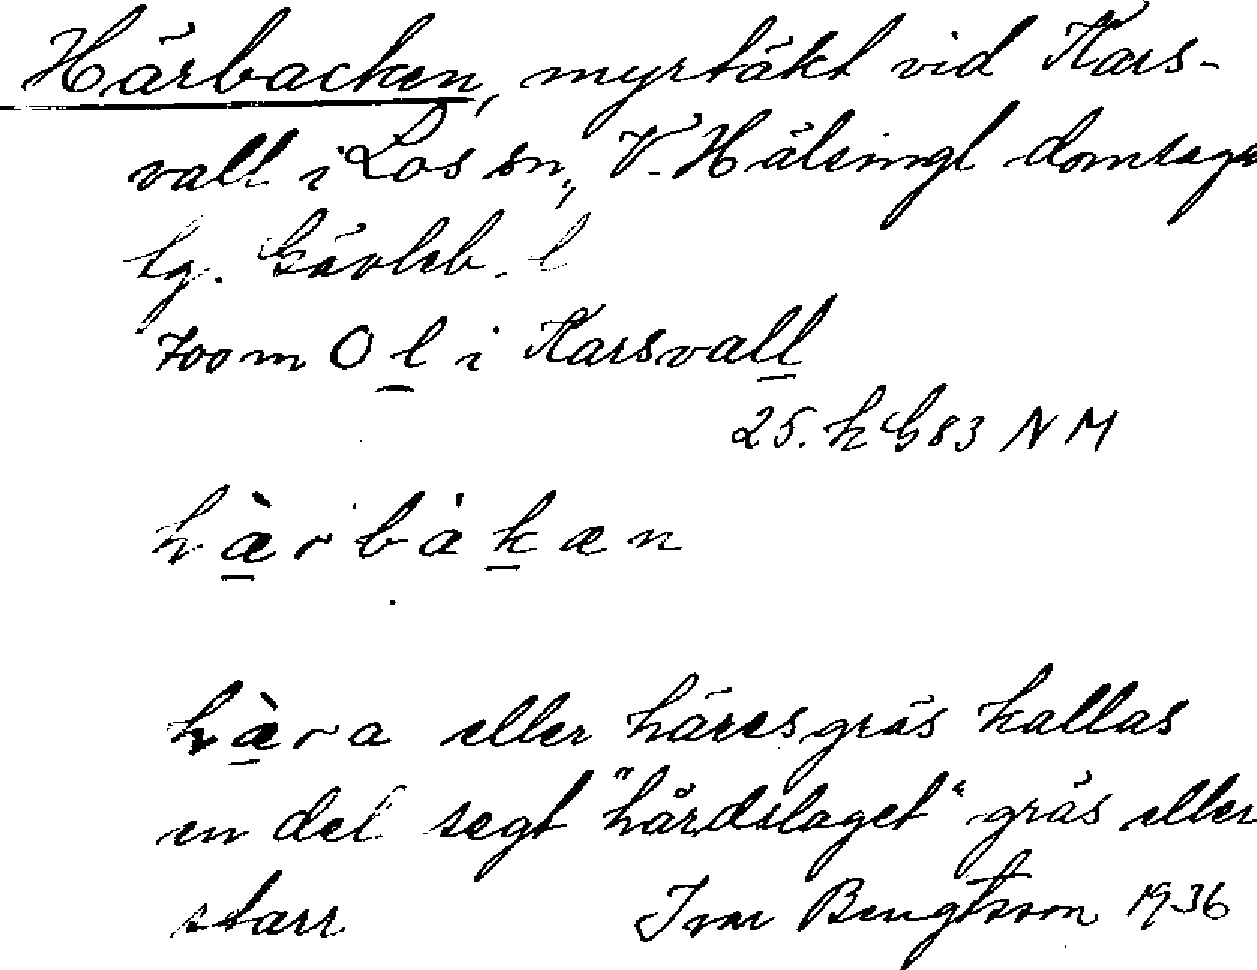 Härbacken, myrtäkt vid Kars-
vall i Los sn, V. Hälsingl domsaga
lg. Gävleb. l
700 m O l i Karsvall
25. k G 83 NM
hæ̀r bȧkæn
hæ̀ra eller häresgräs kallas
en del segt "hårdslaget" gräs eller
starr Ivar Bengtsson 1936